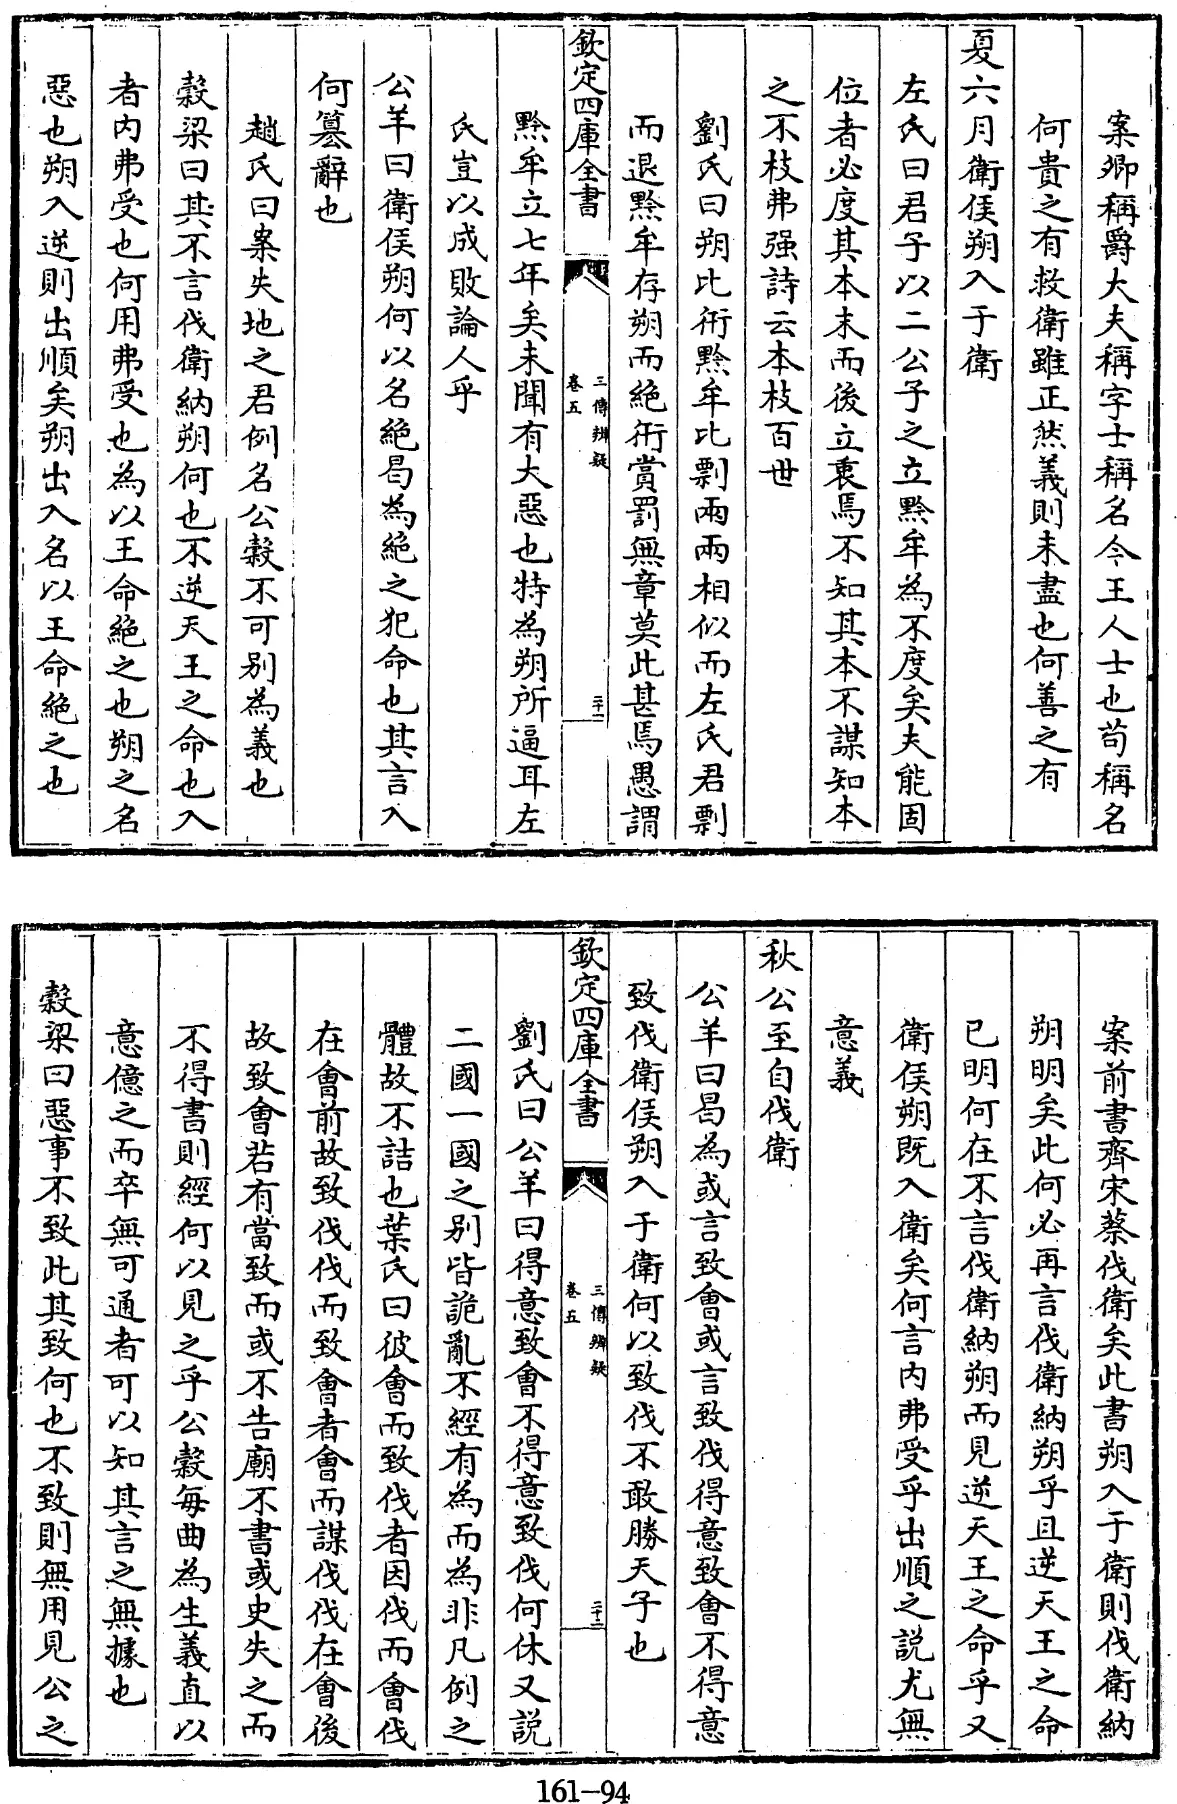 案卿稱爵大夫稱字士稱名今王人士也苟稱名
何貴之有救衛雖正然義則未盡也何善之有
夏六月衛侯朔入于衛
左氏曰君子以二公子之立黔牟為不度矣夫能固
位者必度其本末而後立衷焉不知其本不謀知本
之不枝弗强詩云本枝百世
劉氏曰朔比衎黔牟比剽兩兩相似而左氏君剽
而退黔牟存朔而絶衎賞罰無章莫此甚焉愚謂
欽定四庫全書
三傳辨疑
卷五
二十一
黔牟立七年矣未聞有大惡也特為朔所逼耳左
氏豈以成敗論人乎
公羊曰衛侯朔何以名絶曷為絶之犯命也其言入
何簒辭也
趙氏曰案失地之君例名公榖不可别為義也
榖梁曰其不言伐衛納朔何也不逆天王之命也入
者内弗受也何用弗受也為以王命絶之也朔之名
惡也朔入逆則出順矣朔出入名以王命絶之也
案前書齊宋蔡伐衛矣此書朔入于衛則伐衛納
朔明矣此何必再言伐衛納朔乎且逆天王之命
已明何在不言伐衛納朔而見逆天王之命乎又
衛侯朔既入衛矣何言内弗受乎出順之説尤無
意義
秋公至自伐衛
公羊曰曷為或言致會或言致伐得意致會不得意
致伐衛侯朔入于衛何以致伐不敢勝天子也
欽定四庫全書
三傳辨疑
卷五
二十二
劉氏曰公羊曰得意致會不得意致伐何休又説
二國一國之别皆詭亂不經有為而為非凡例之
體故不詰也葉氏曰彼會而致伐者因伐而會伐
在會前故致伐伐而致會者會而謀伐伐在會後
故致會若有當致而或不告廟不書或史失之而
不得書則經何以見之乎公榖每曲為生義直以
意億之而卒無可通者可以知其言之無據也
榖梁曰惡事不致此其致何也不致則無用見公之
161-94